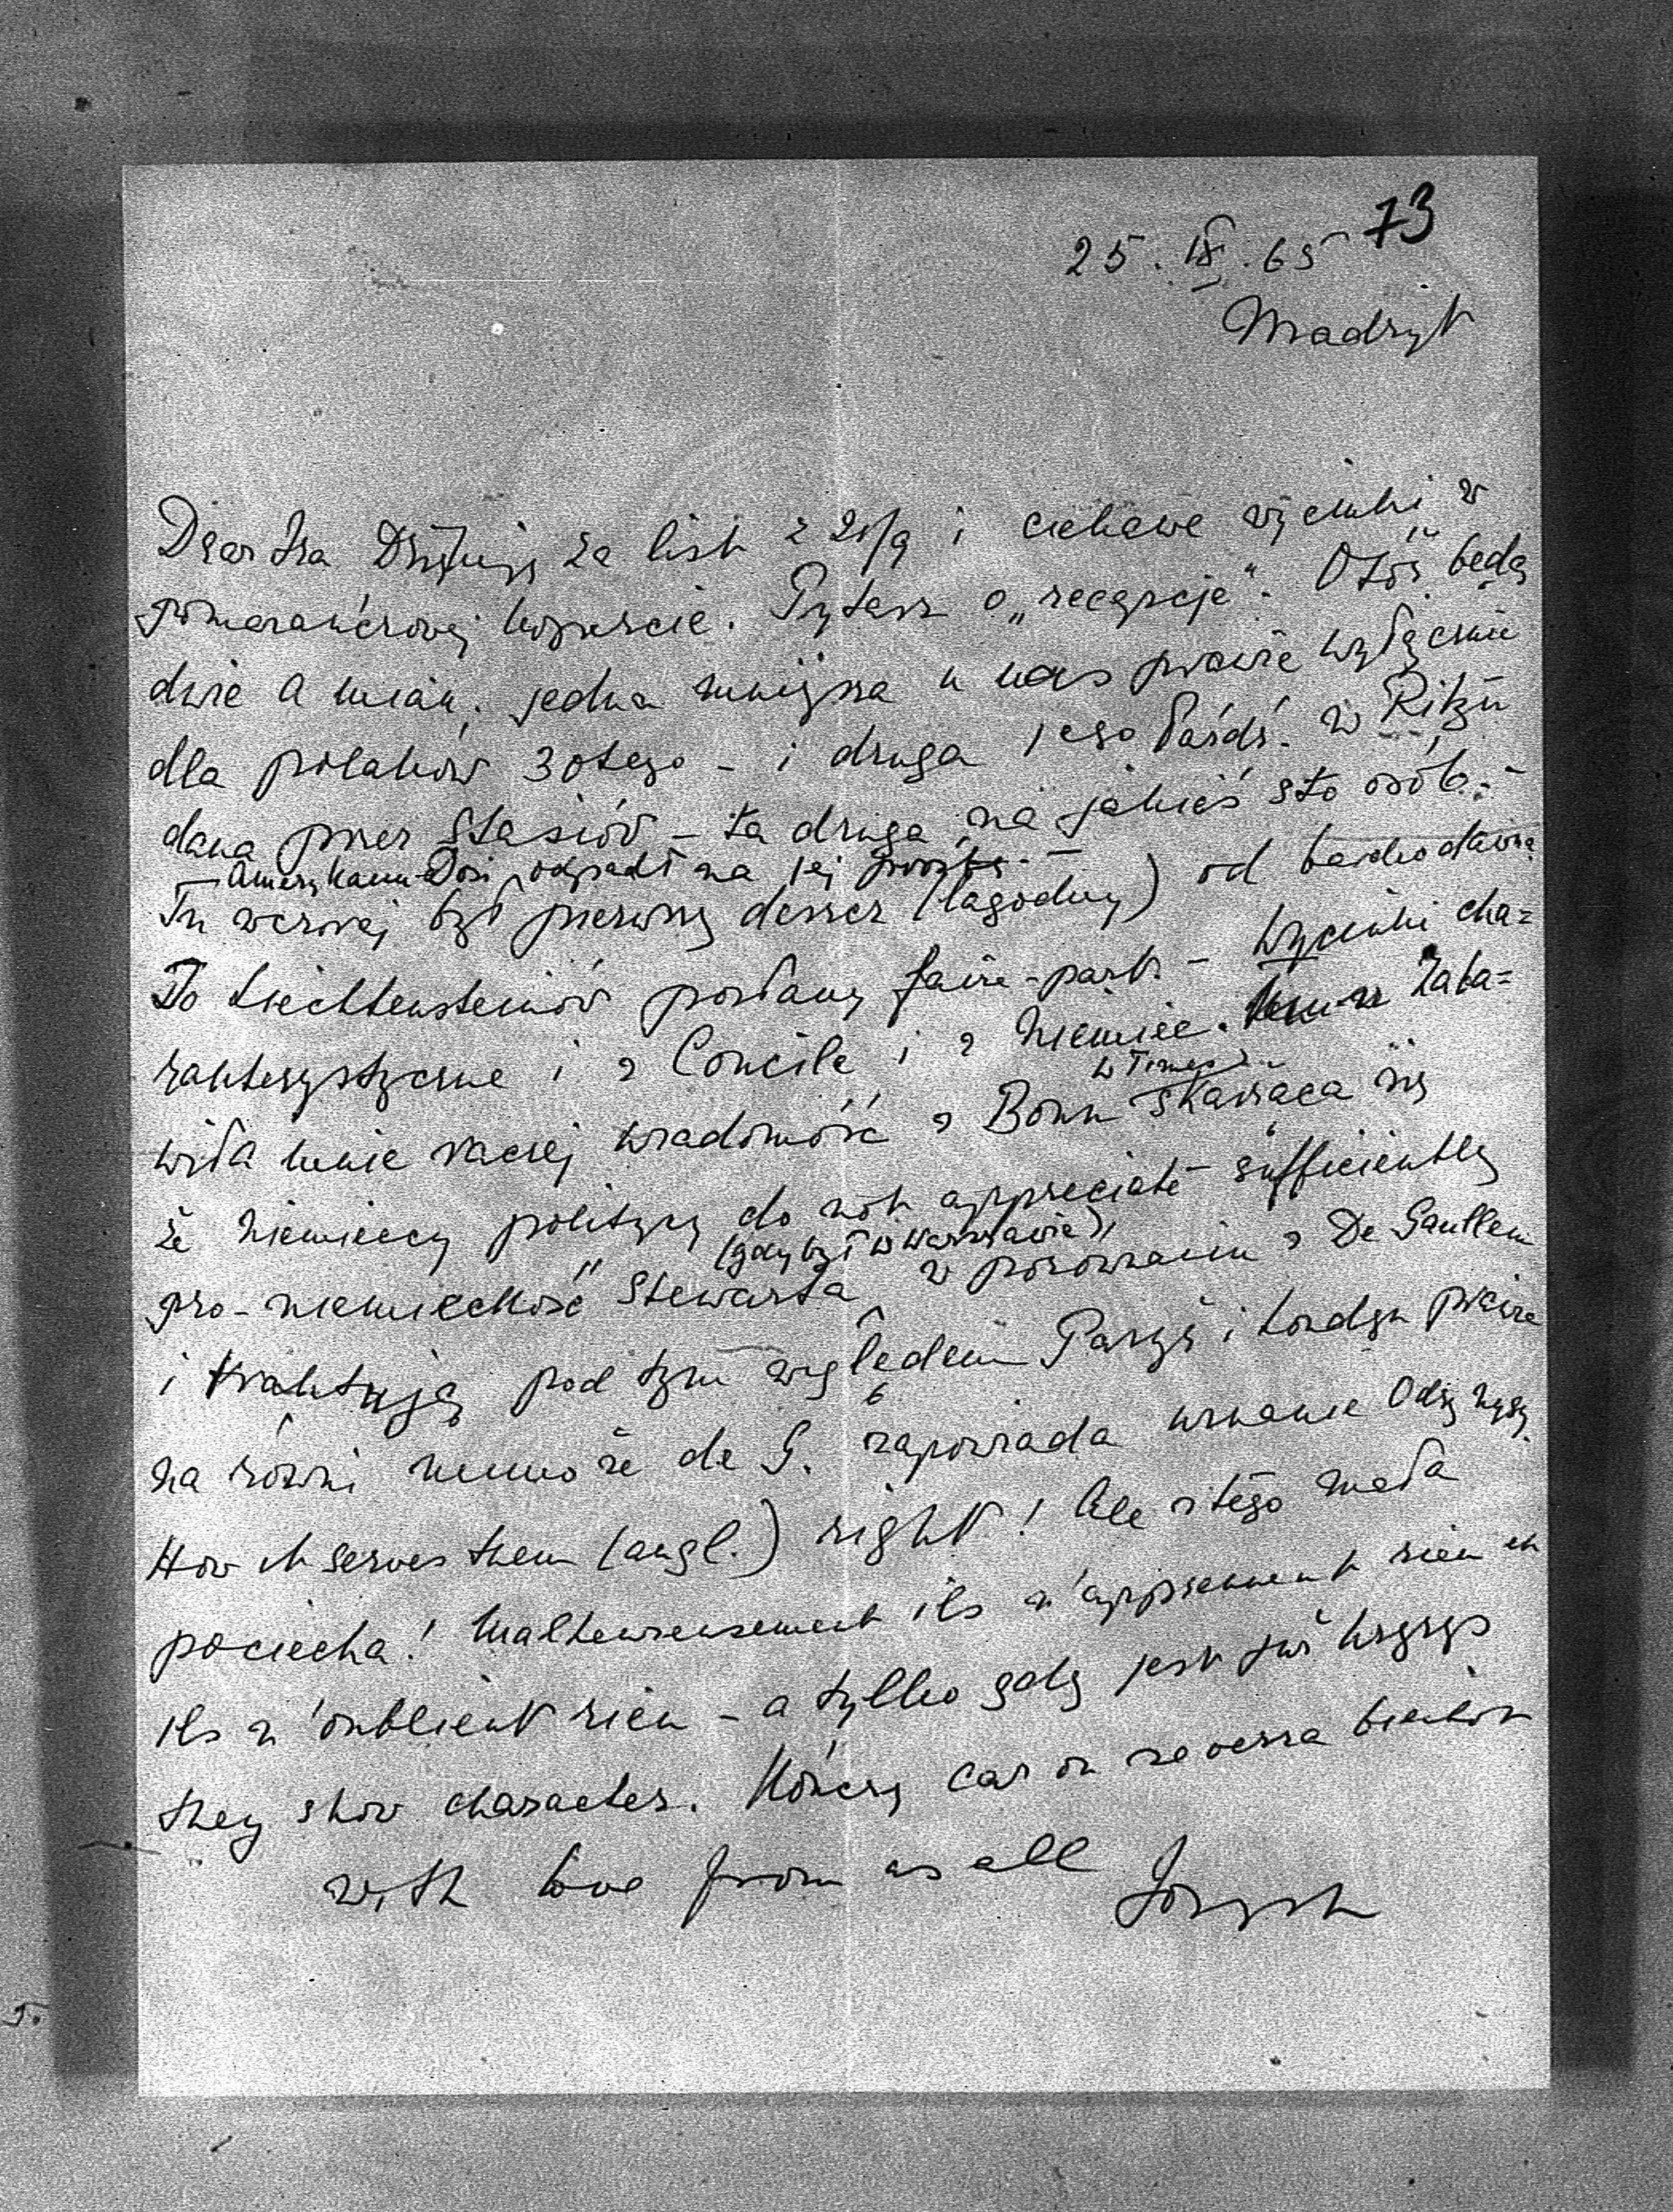 73
25. IX. 65
Madryt
Dear Iza Dziękuję za list z 21/9 i ciekawe wycinki w
pomarańczowej kopercie. Pytasz o „recepcje”. Otóż będą
dwie a mian. jedna mniejsza u nas prawie wyłącznie
dla polaków 30tego – i druga 1ego Paźdź. w Ritzu
dana przez Stasiów – ta druga na jakieś sto osób.–
Amerykanin Dosi odpadł na jej prośbę. –
Tu wczoraj był pierwszy deszcz (łagodny) od bardzo dawna
Do Liechtensteinów posłany faire-part. – Wycinki cha=
rakterystyczne i z Concile i z Niemiec. Zaba=
wiła mnie raczej wiadomość z Bonn w Times skarżąca się
że niemieccy politycy do not appreciate sufficiently
pro-niemieckość Stewarta (gdy był w Warszawie) w porównaniu z De Gaullem
i traktują pod tym względem Paryż i Londyn prawie
na równi mimo że de G. zapowiada uznanie Odry Nysy.
How it serves them (angl.) right! Ale z tego mała
pociecha! Malheureusement ils n'apprennent rien et
ils n'oublient rien – a tylko gdy jest już kryzys
they show character. Kończę car on renversa bientôt
with love from us all
Józych